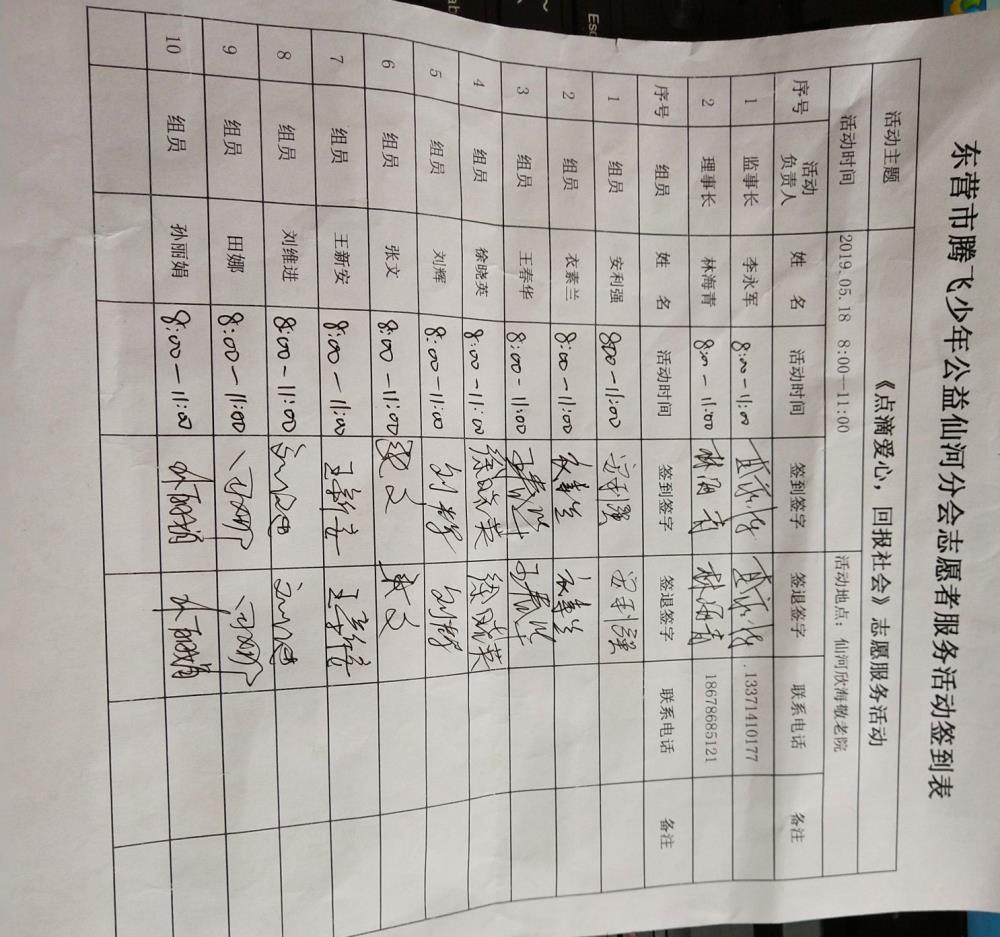 东营市腾飞少年公益仙河分会志愿者服务活动签到表
活动主题 《点滴爱心，回报社会》志愿服务活动
活动时间 2019.05.18 8:00—11:00 活动地点：仙河欣海敬老院
序号 活动负责人 姓 名 活动时间 签到签字 签退签字 联系电话 备注
1 监事长 李永军 8:00-11:00 13371410177
2 理事长 林海青 8:00-11:00 林海青 林海青 18678685121
序号 组员 姓 名 活动时间 签到签字 签退签字 联系电话 备注
1 组员 安利强 800-11:00 安利强 安利强
2 组员 衣素兰 8:00-11:00 衣素兰 衣素兰
3 组员 王春华 8:00-11:00 王春华 王春华
4 组员 徐晓英 8:00-11:00 徐晓英 徐晓英
5 组员 刘辉 8:00-11:00 刘辉 刘辉
6 组员 张文 8:00-11:00 张文 张文
7 组员 王新安 8:00-11:00 王新安 王新安
8 组员 刘维进 8:00-11:00
9 组员 田娜 8:00-11:00 田娜 田娜
10 组员 孙丽娟 8:00-11:00 孙丽娟 孙丽娟
Esc